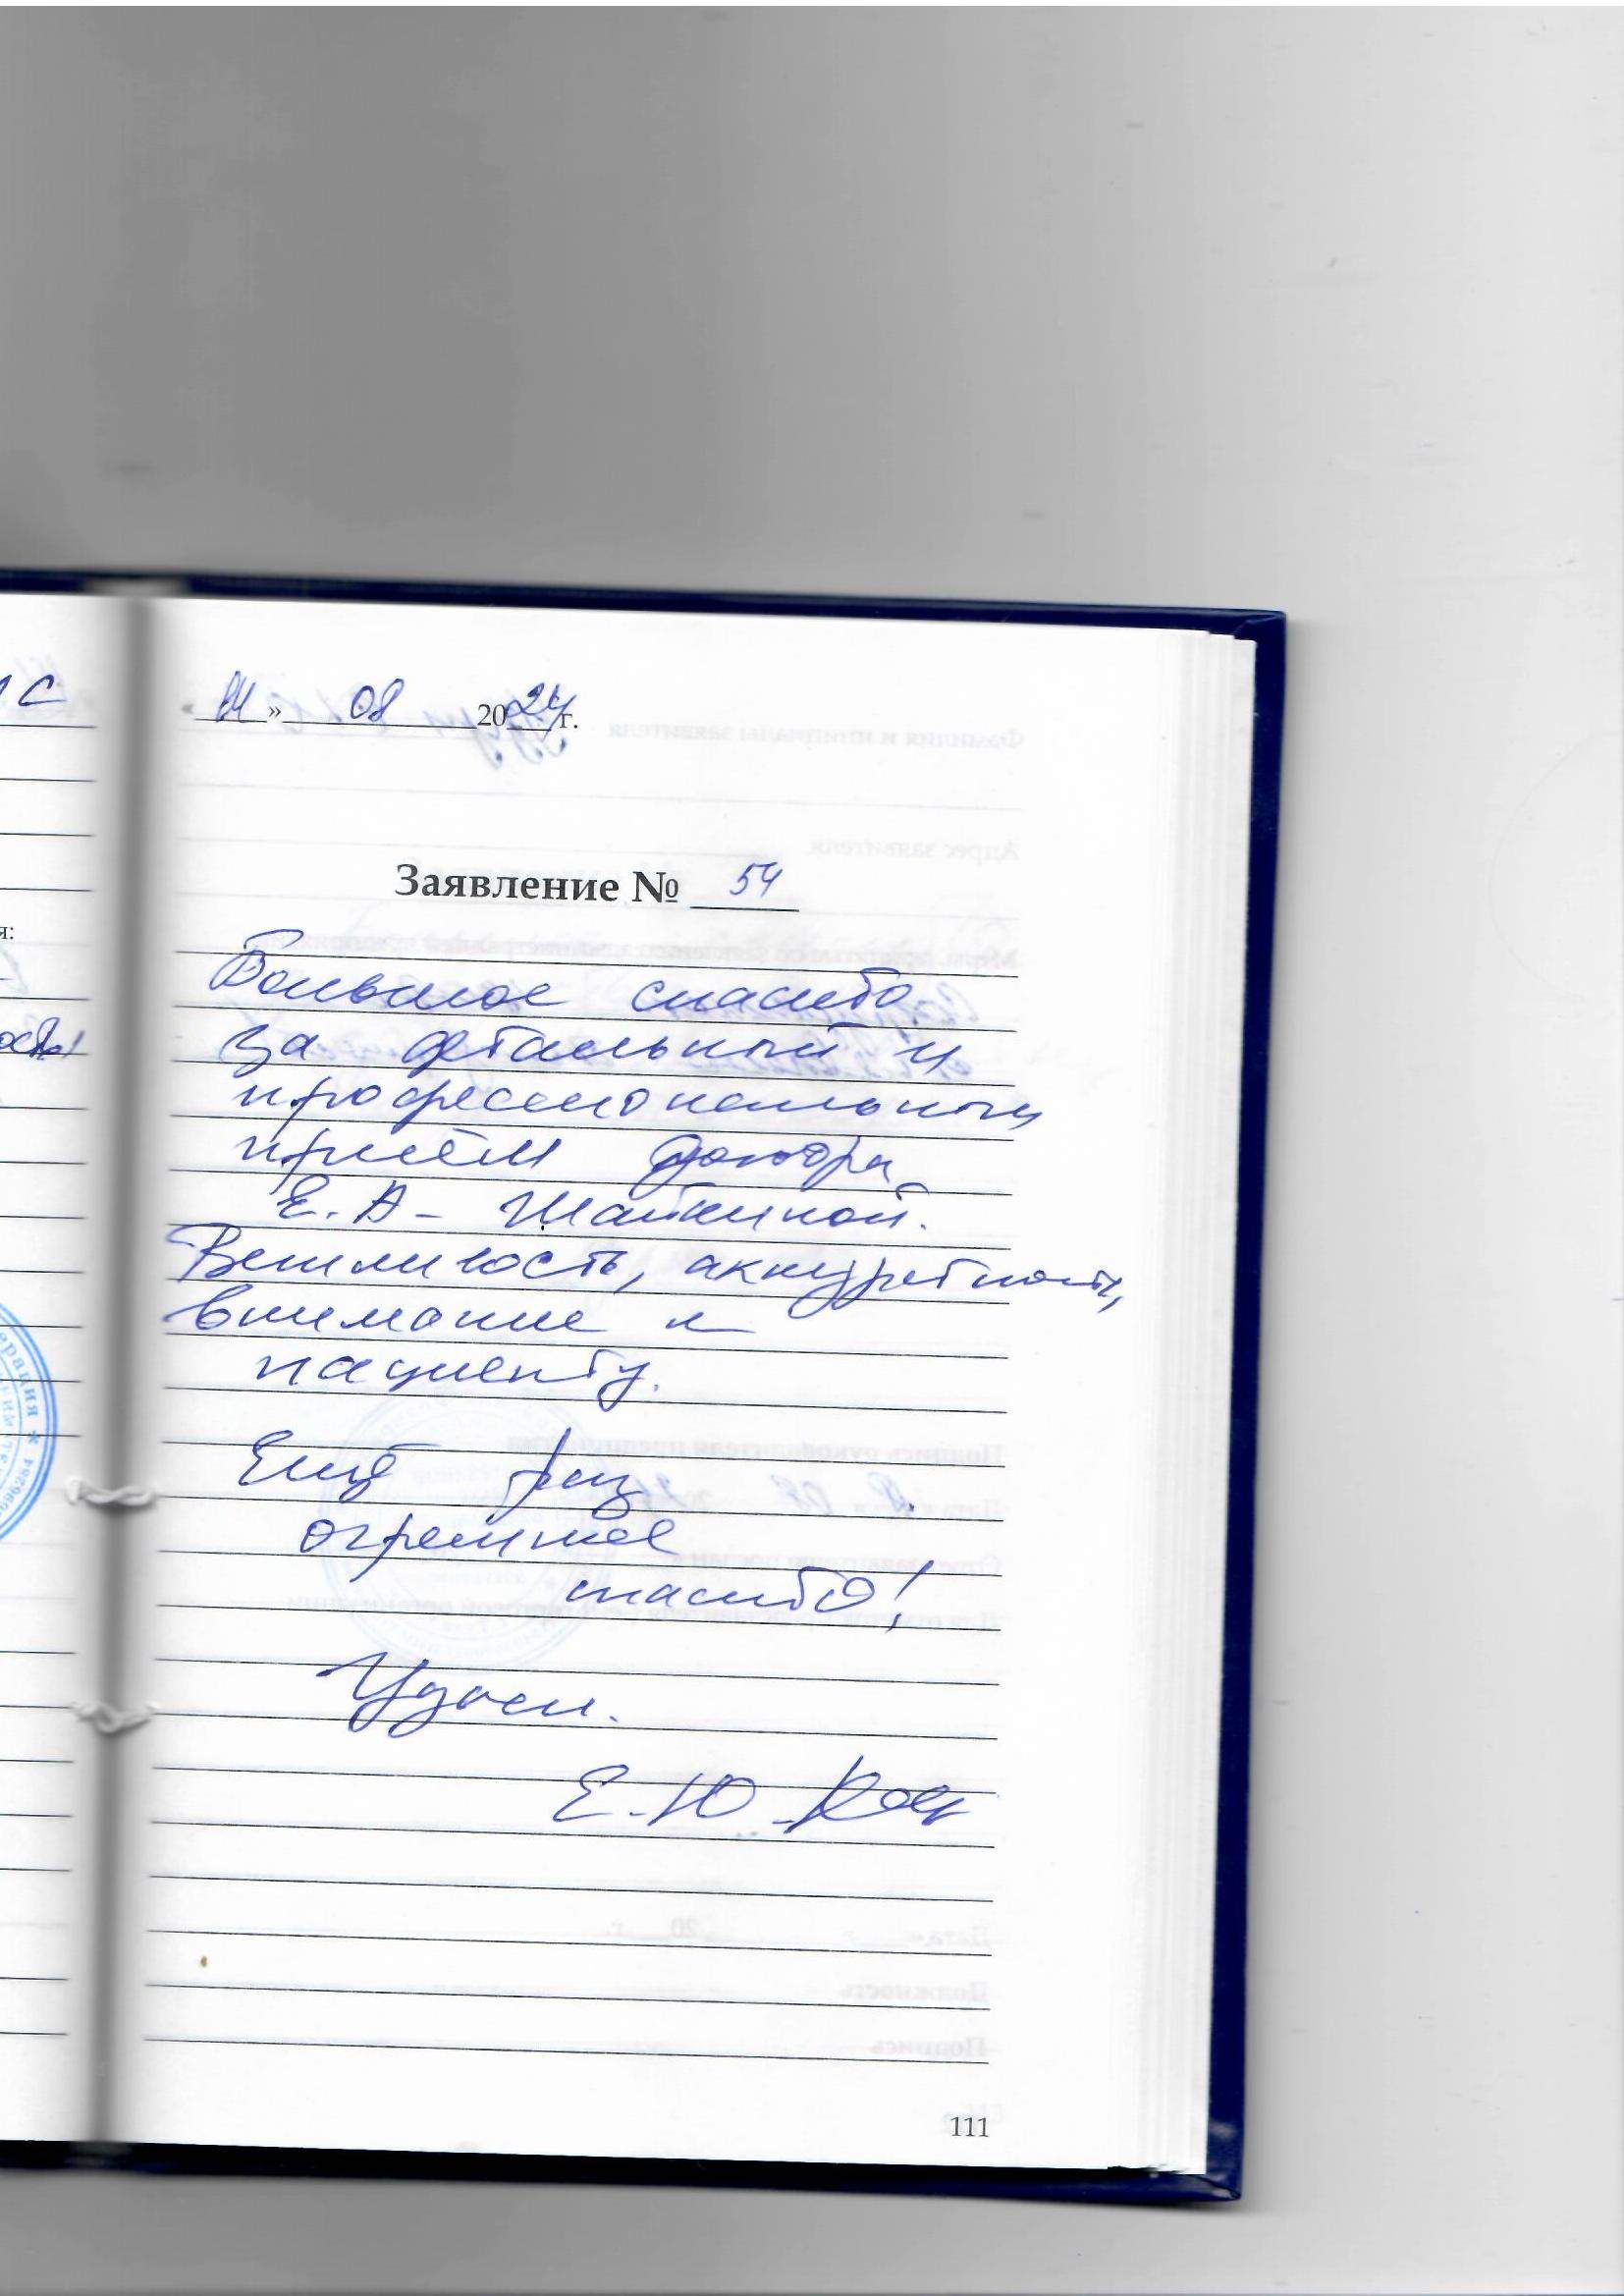 08 2024 г.
Заявление № 54
Большое спасибо
за детальный и
профессиональный
приём доктора
Е. А. Шайкиной.
Вежливость, аккуратность,
внимание к
пациенту.
Ещё раз
огромное
спасибо!
Е. Ю.
111